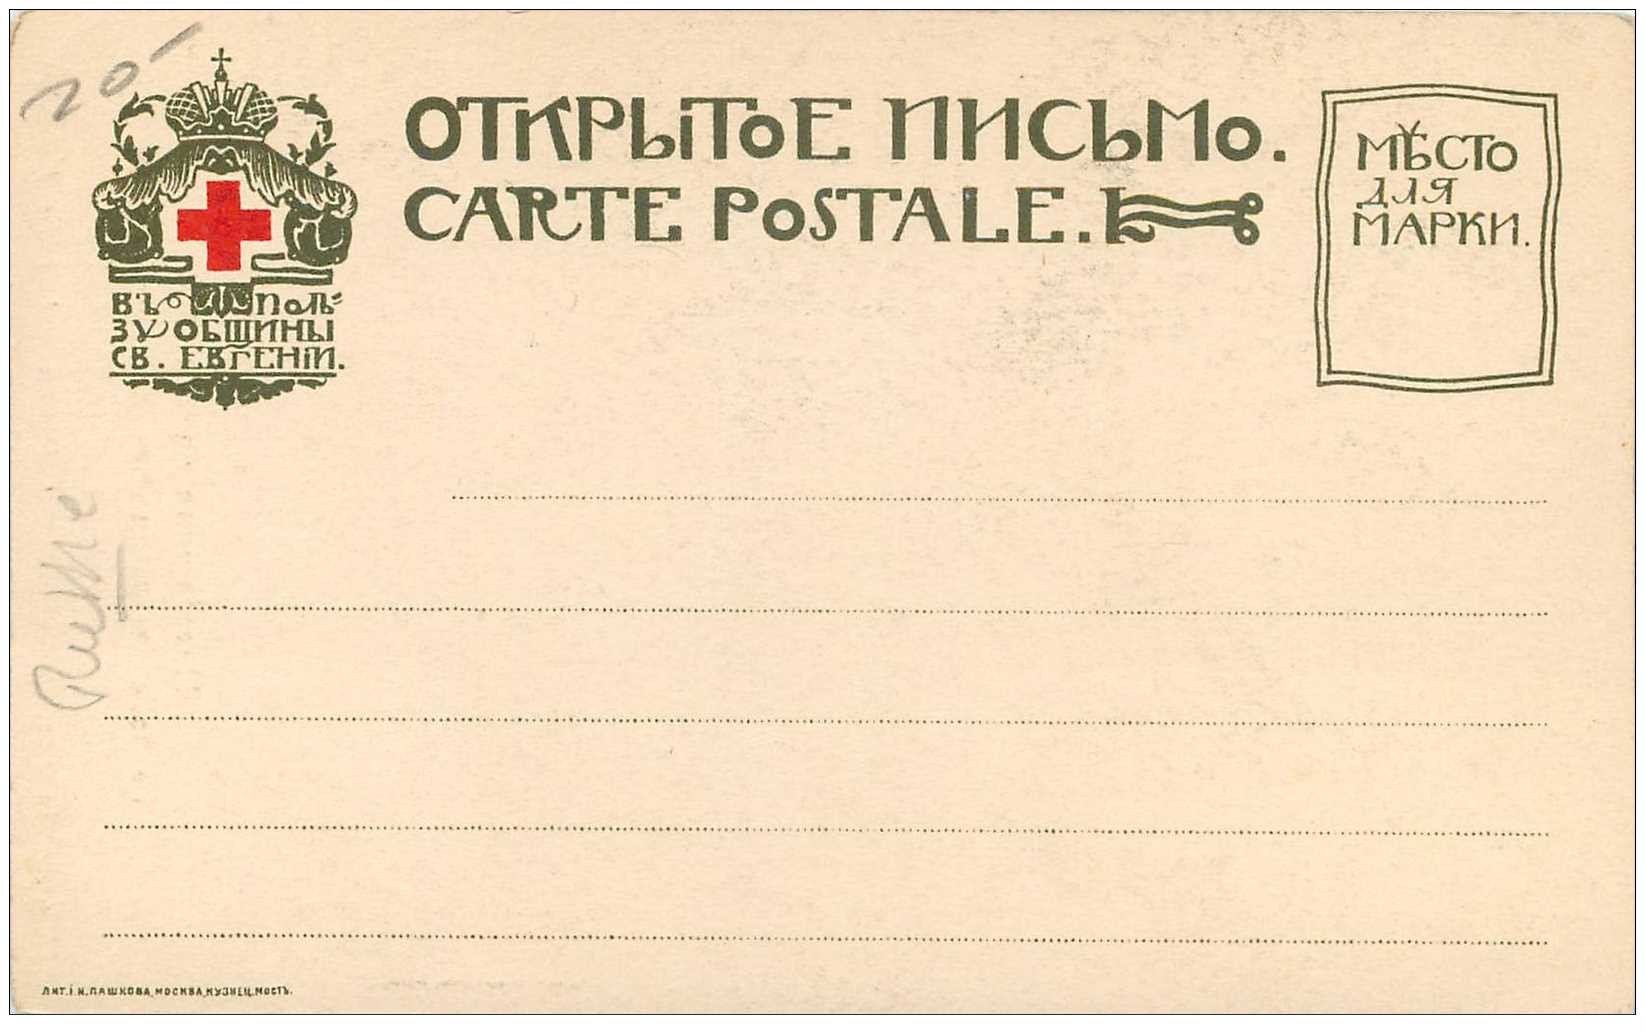 20-
ОТКРЫТОЕ ПИСЬМО.
CARTE POSTALE.
МѢСТО
ДЛЯ
МАРКИ.
ВЪ ПОЛЬ=
ЗУ ОБЩИНЫ
СВ. ЕВГЕНІИ.
ЛИТ. І. Н. ПАШКОВА, МОСКВА, КУЗНЕЦ. МОСТЪ.